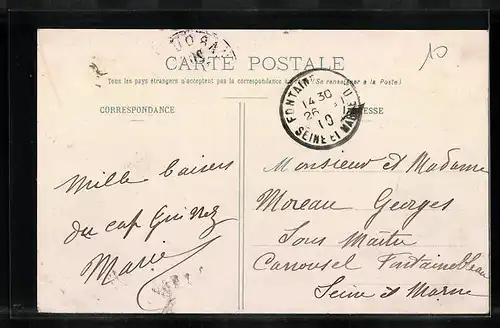 CARTE POSTALE
Tous les pays étrangers n'acceptent pas la correspondance (Se renseigner à la Poste)
CORRESPONDANCE
FONTAINE
14 30
26
10
SEINE ET MARNE
10
Mille baisers
du cap Gris Nez
Marie
Monsieur et Madame
Moreau Georges
Sous Maître
Carrousel Fontainebleau
Seine et Marne